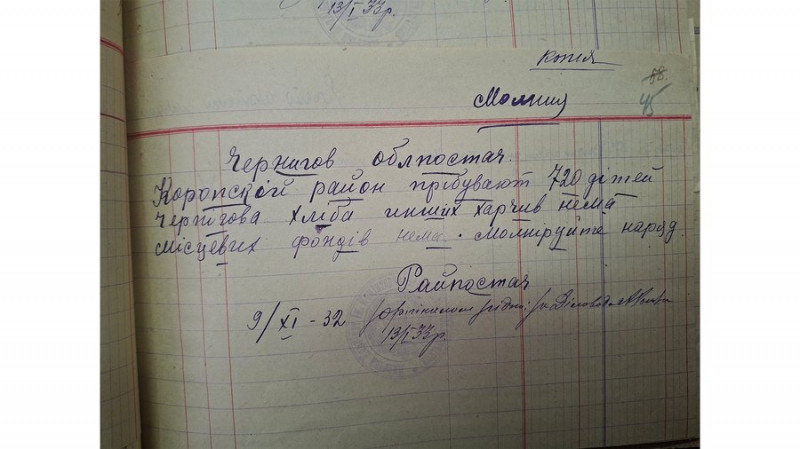 13/I 33р.
копия
88.
45
Молния
Чернигов облпостач
Коропский район прібувают 720 дітей
Чернігова хліба инших харчив нема
місцевих фондів нема. молніруйте наряд.
Райпостач
9/XI-32 З оригіналом згідно:
13/I 33р.